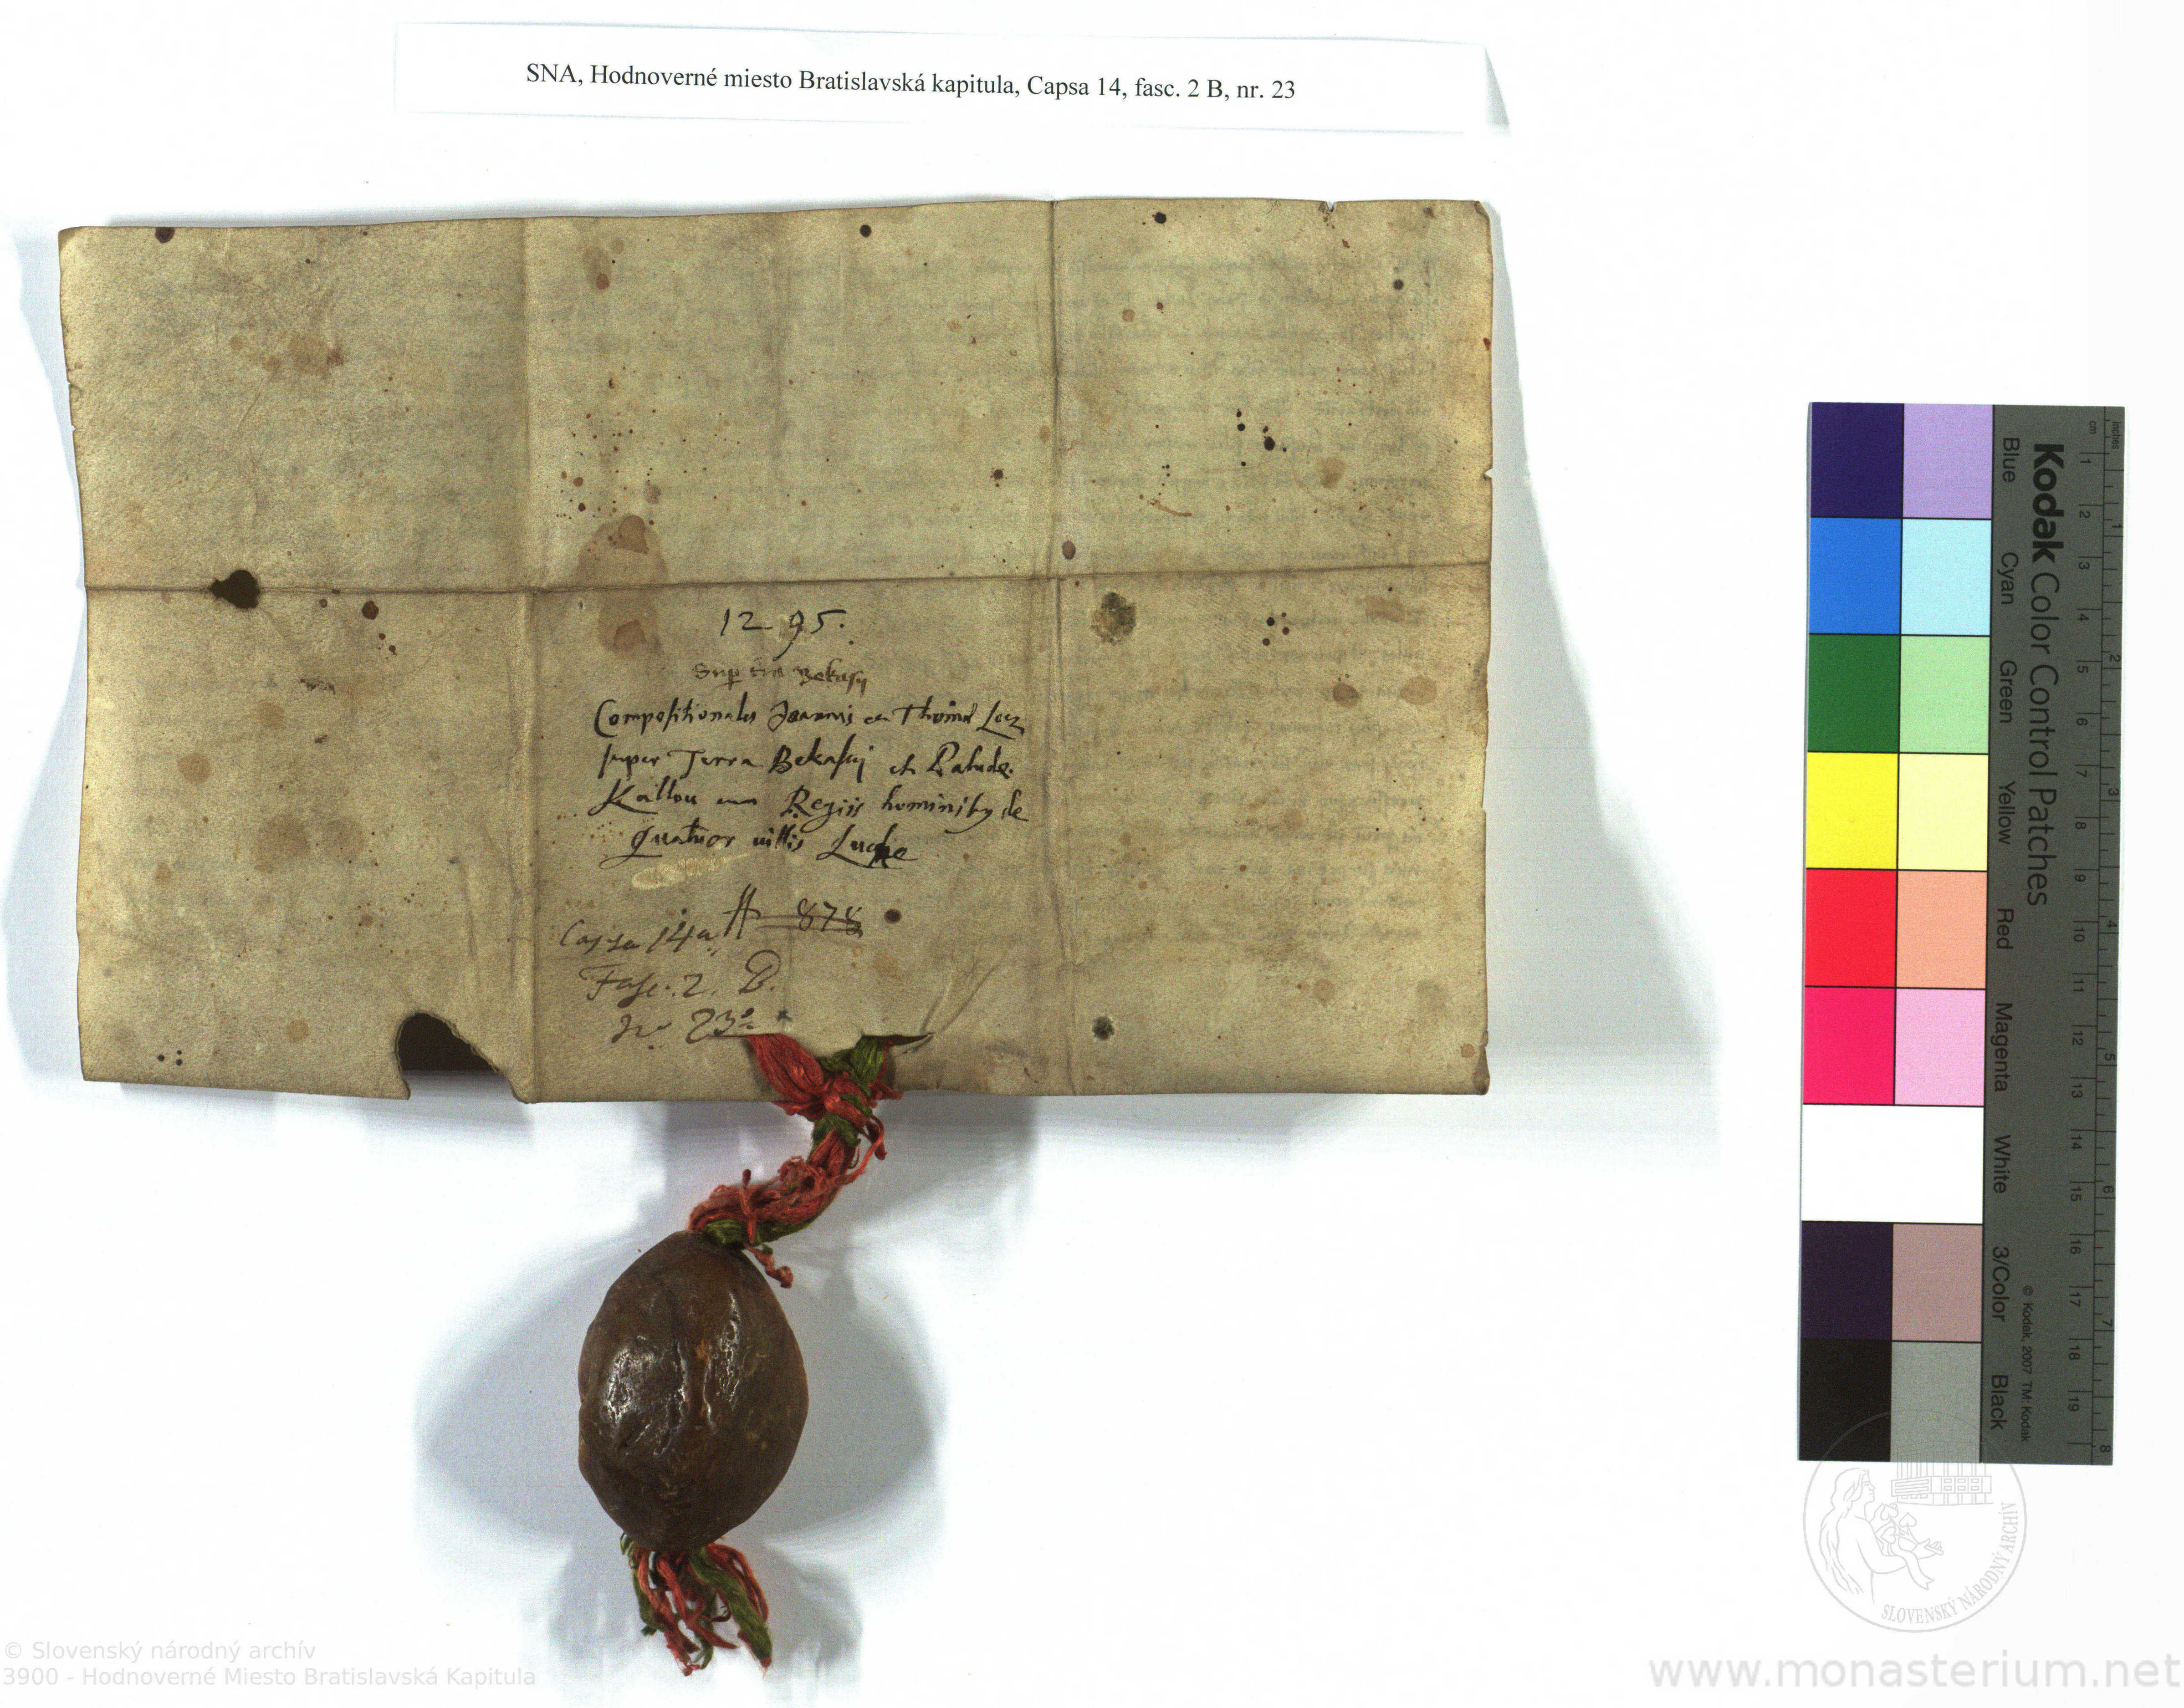 SNA, Hodnoverné miesto Bratislavská kapitula, Capsa 14, fasc. 2 B, nr. 23
1295.
Bekasy
Compositionales Joannis et Thomæ
super Terra Bekasy et Palude
Kaillou cum Regiis hominibus de
quatuor villis Luche
A 878
Capsa 14a
Fasc. 2. B.
Nro 23
Kodak Color Control Patches
Blue Cyan Green Yellow Red Magenta White 3/Color Black
© Kodak, 2007 TM: Kodak
cm 1 2 3 4 5 6 7 8 9 10 11 12 13 14 15 16 17 18 19
inches 1 2 3 4 5 6 7 8
SLOVENSKÝ NÁRODNÝ ARCHÍV
© Slovenský národný archív
3900 - Hodnoverné Miesto Bratislavská Kapitula
www.monasterium.net